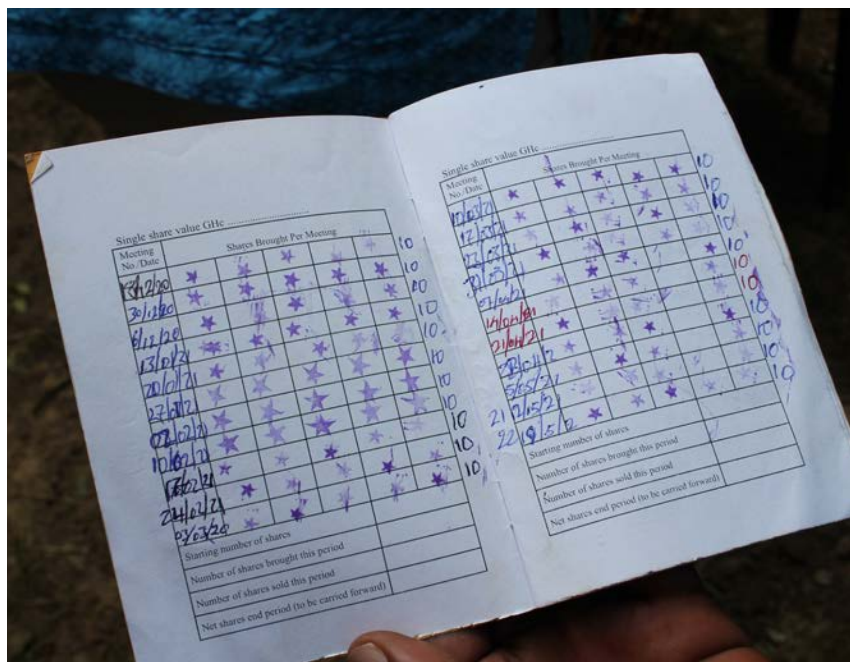 Single share value GHc ............................
Meeting No./Date
Shares Brought Per Meeting
13/12/20 10
30/12/20 10
6/12/20 10
13/01/21 10
20/01/21 10
27/01/21 10
02/02/21 10
10/02/21 10
16/02/21 10
24/02/21 10
03/03/20 10
Starting number of shares
Number of shares brought this period
Number of shares sold this period
Net shares end period (to be carried forward)
Single share value GHc ............................
Meeting No./Date
Shares Brought Per Meeting
10/03/21 10
17/03/21 10
23/03/21 10
31/03/21 10
10
14/04/21 10
21/04/21 10
10
5/05/21 10
21 12/05/21 10
22 19/5/2 10
Starting number of shares
Number of shares brought this period
Number of shares sold this period
Net shares end period (to be carried forward)